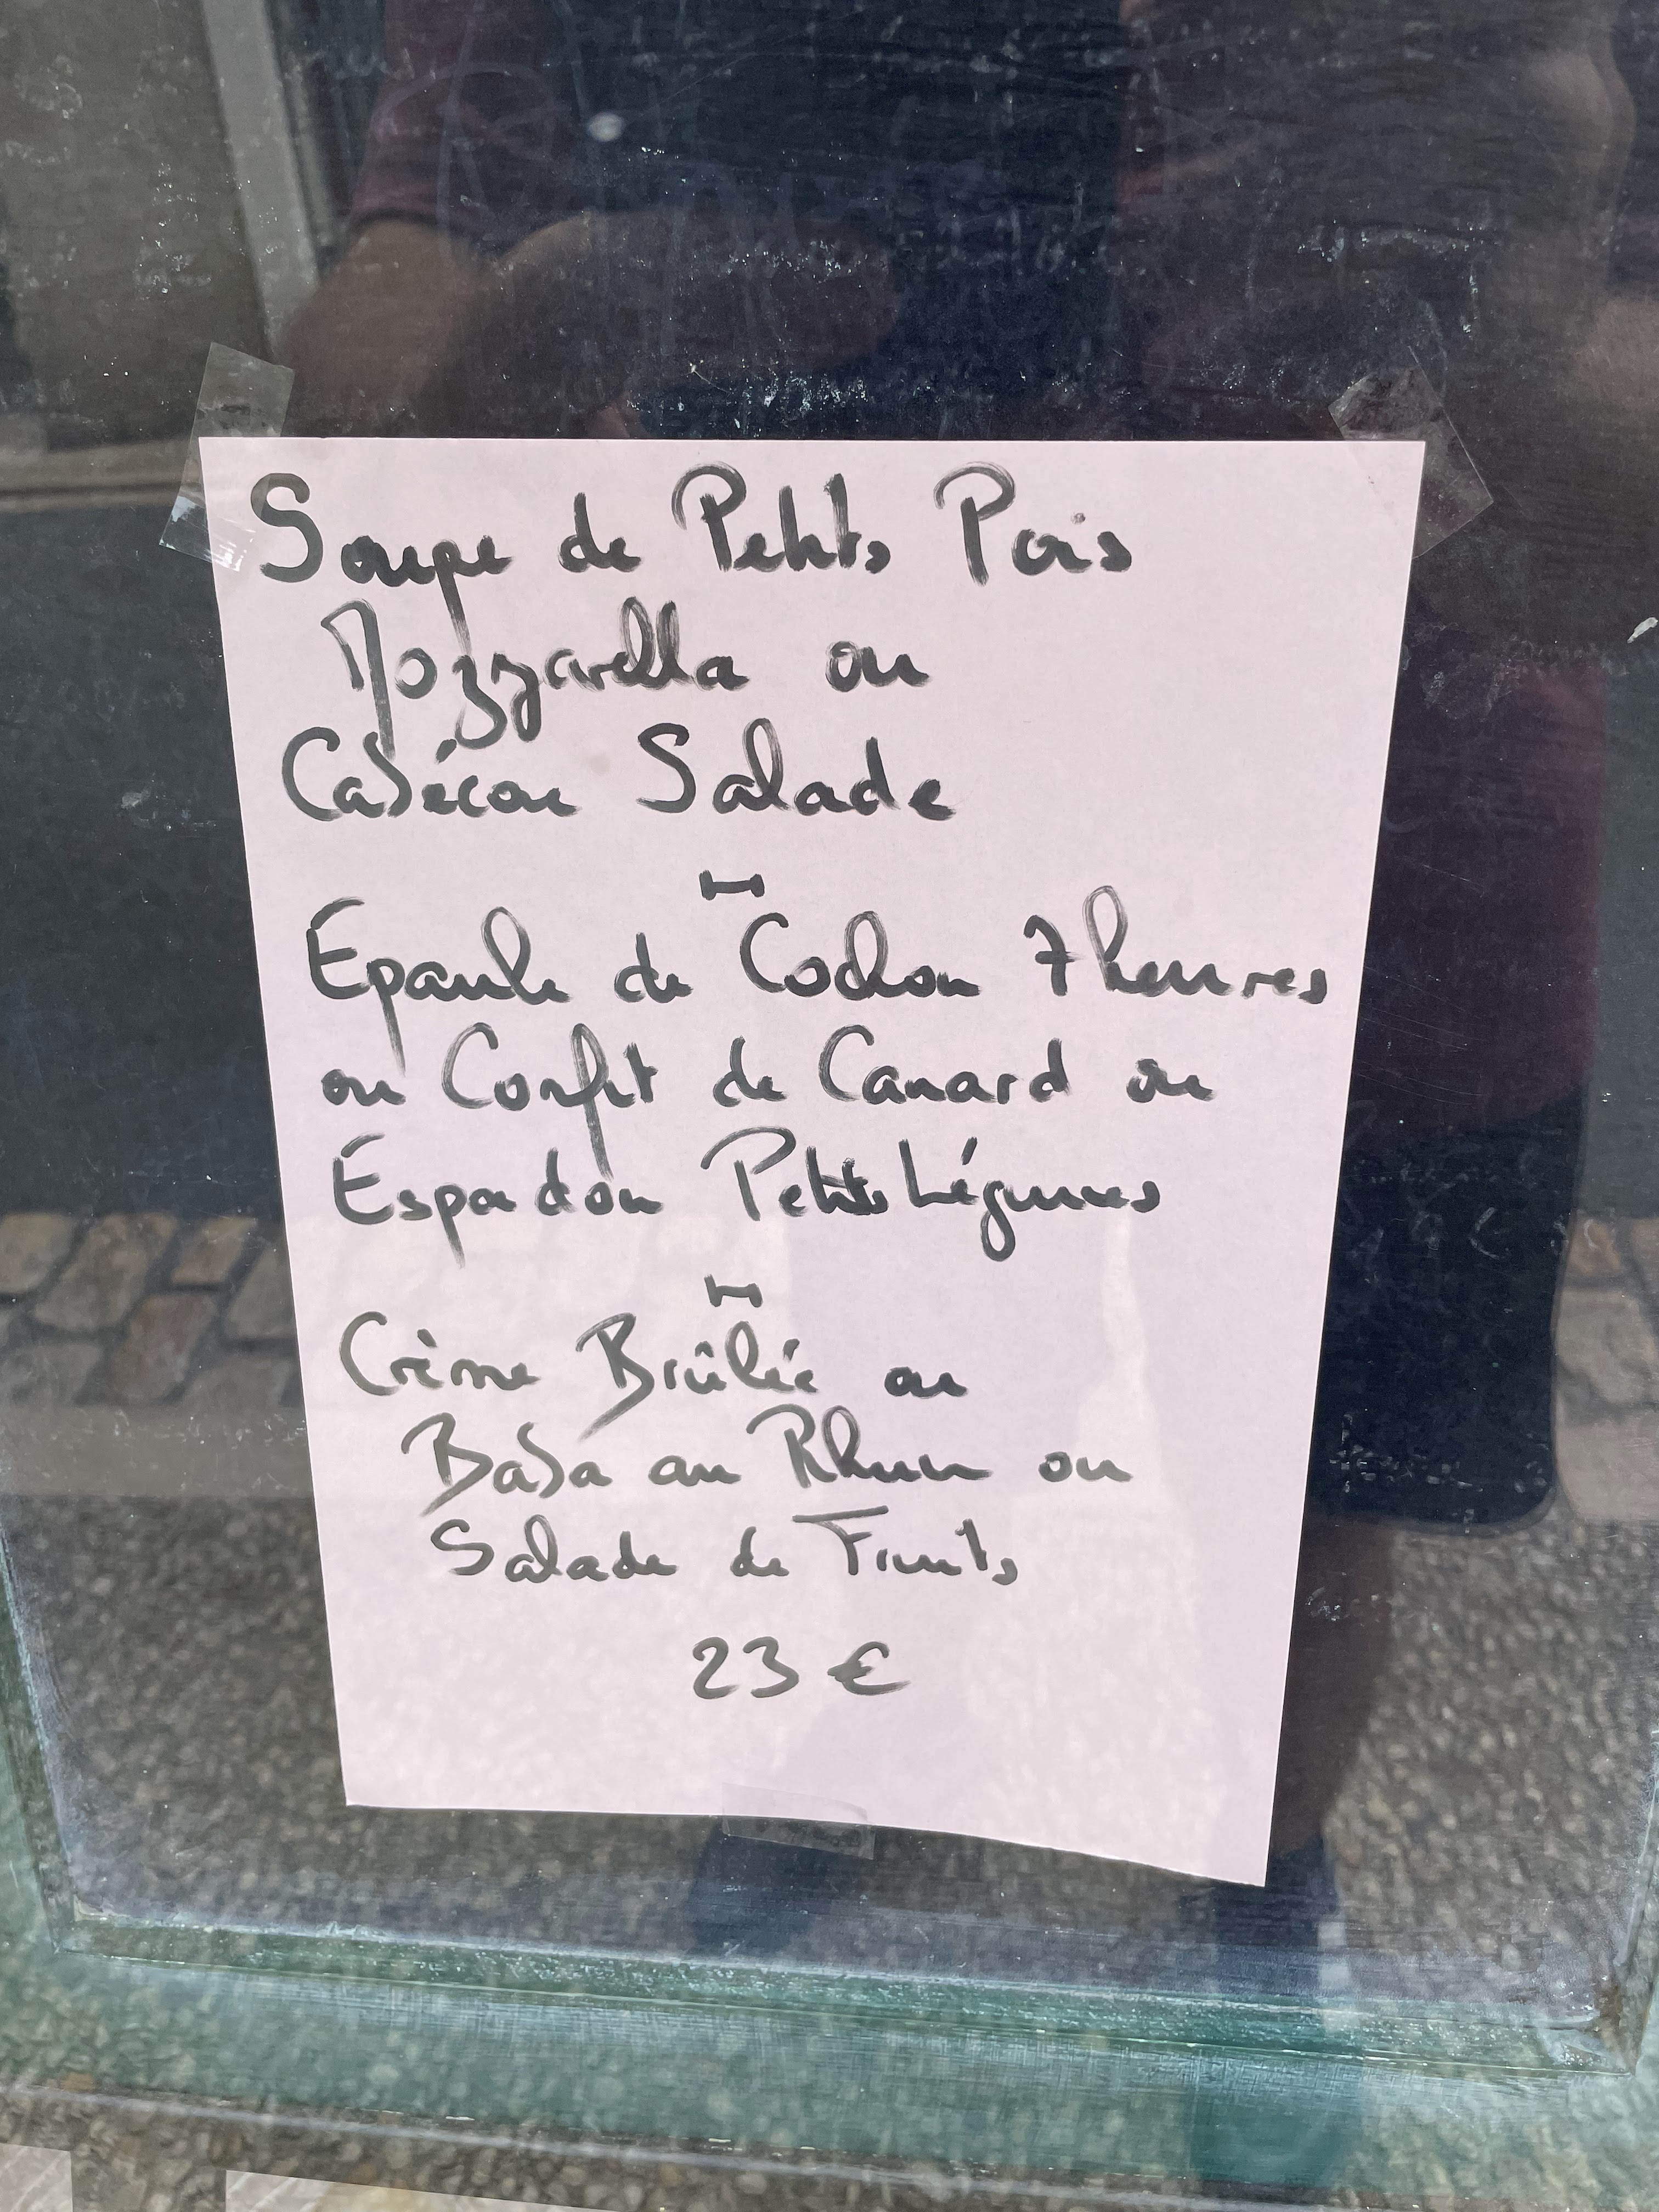 Soupe de Petits Pois
Mozzarella ou
Cabécou Salade
Epaule de Cochon 7 heures
ou Confit de Canard ou
Espadon Petits Légumes
Crème Brûlée ou
Baba au Rhum ou
Salade de Fruits
23 €